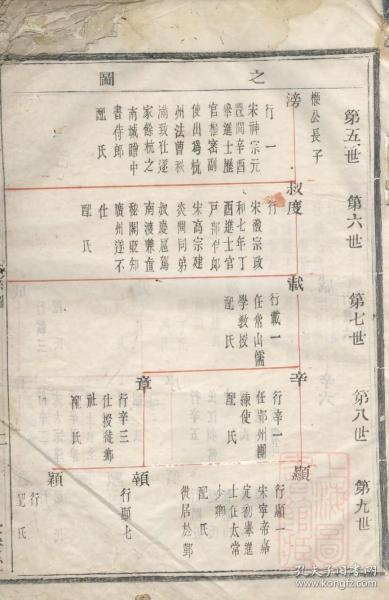 圖之
第五世
第六世
第七世
第八世
第九世
懷公長子
滂
行一
宋神宗元
豐間辛酉
舉進士歷
官樞密副
使出爲杭
州法曹秋
滿致仕遂
家餘杭之
南城贈中
書侍郎
配氏
叔度
行
宋徽宗政
和七年丁
酉進士官
戶部侍郎
宋高宗建
炎間同弟
叔慶扈駕
南渡兼直
秘閣疑知
廣州遂不
仕
配氏
載
行載一
任常山儒
學教授
配氏
辛
行辛一
任鄂州團
練使
配氏
章
行辛三
仕授徒鄉
社
配氏
顯
行顯一
宋寧帝嘉
定利舉進
士仕太常
少卿
配氏
徙居於鄞
顈
行顯七
穎
行
配氏
孔夫子旧书网